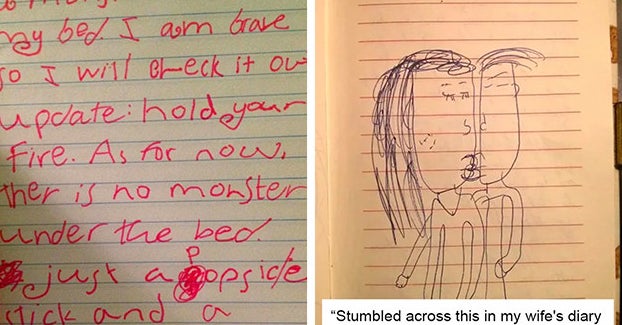 my bed I am brave
so I will check it ou
update: hold your
fire. As for now,
ther is no monster
under the bed.
just a popsicle
stick and a
"Stumbled across this in my wife's diary